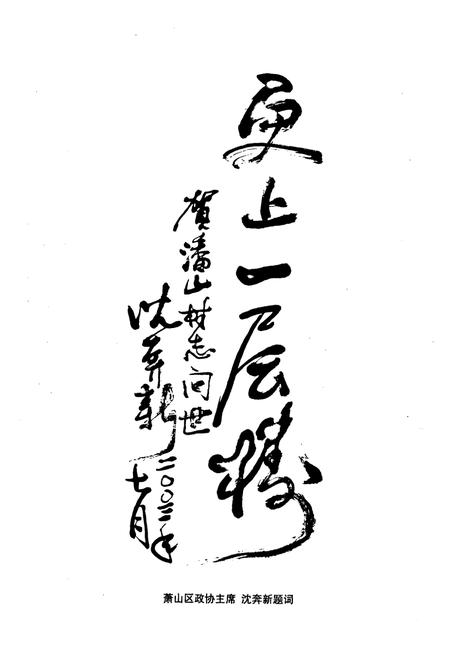 更上一层楼
贺潘山村志问世
沈奔新
二〇〇二年
七月
萧山区政协主席 沈奔新题词